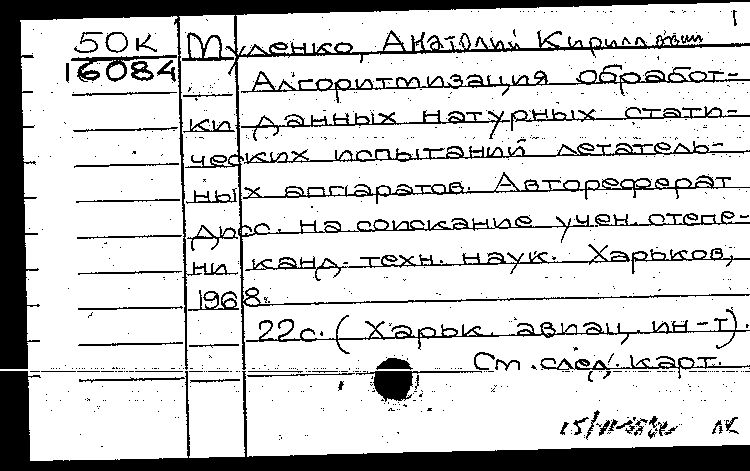 1
50к Туленко, Анатолий Кириллович
16084 Алгоритмизация обработ-
ки данных натурных стати-
ческих испытаний летатель-
ных аппаратов. Автореферат
дисс. на соискание учен. степе-
ни канд. техн. наук. Харьков,
1968.
22с. (Харьк. авиац. ин-т).
См. след. карт.